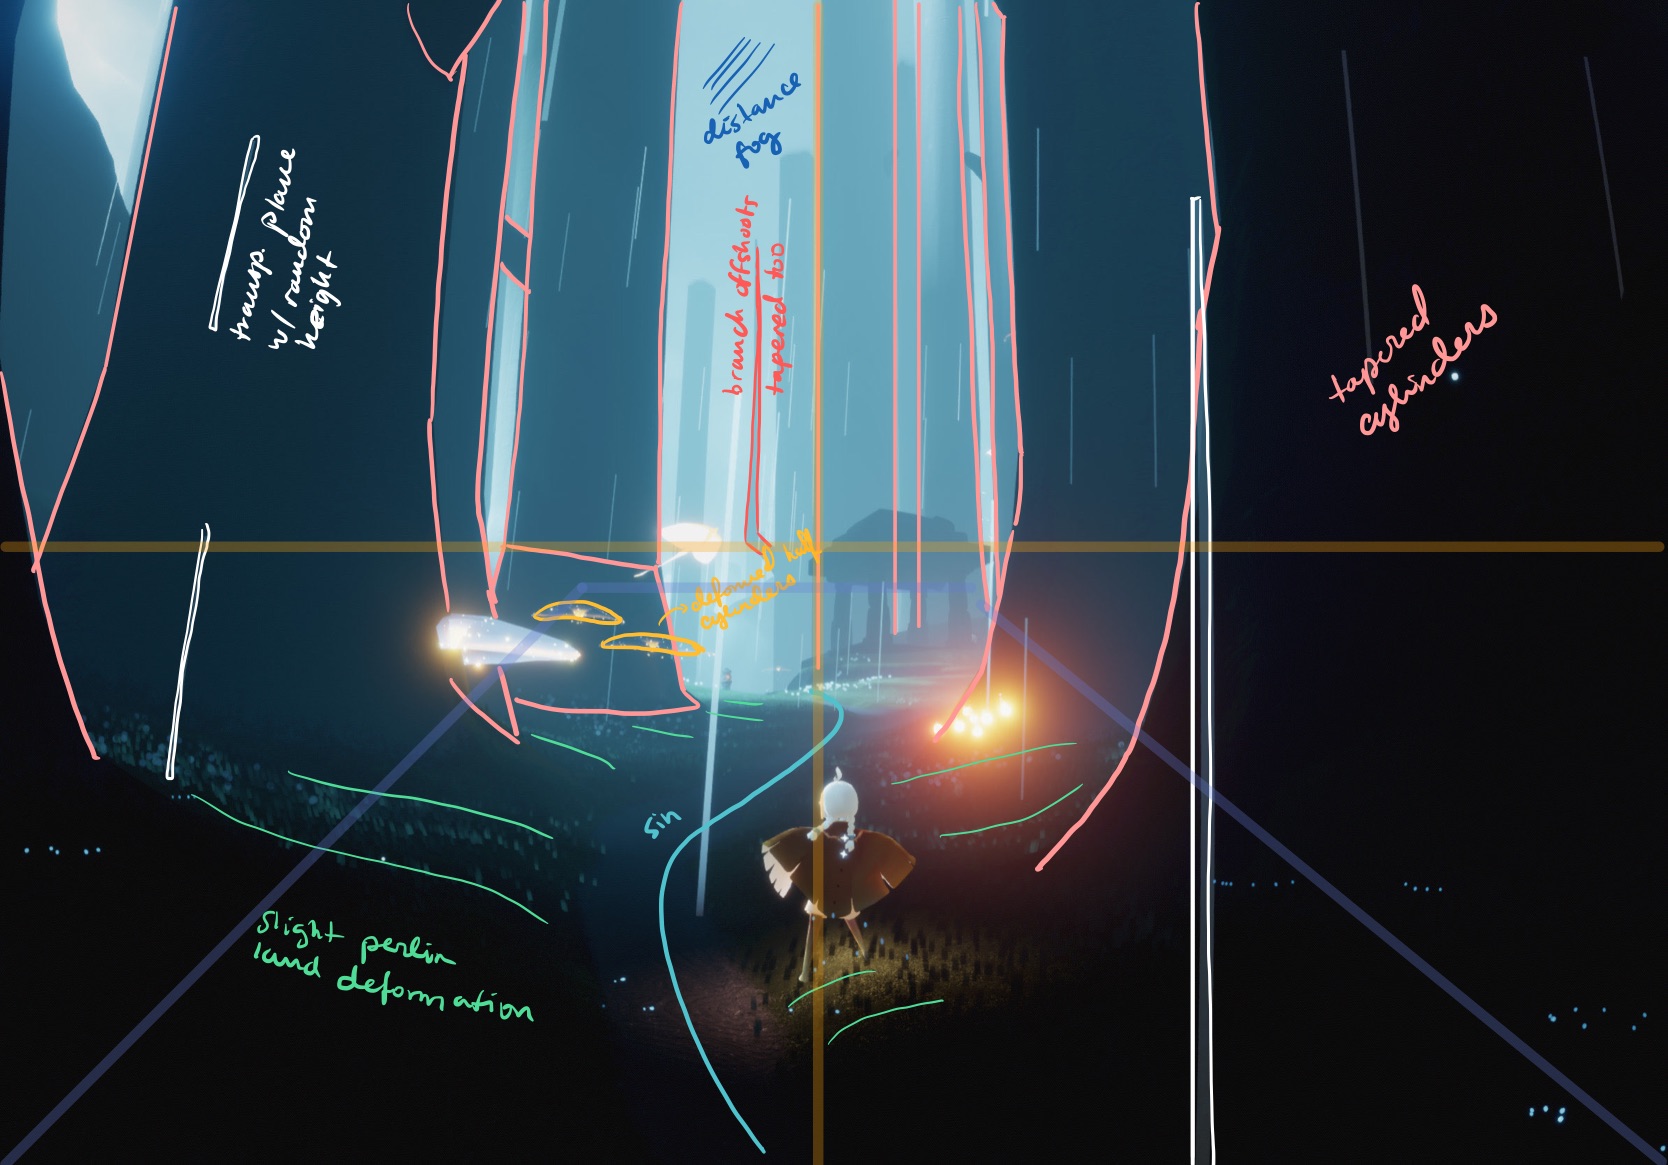 distance
fog
transp. plane
w/ random
height
branch offshoots
tapered too
tapered
cylinders
deformed half
cylinders
sin
Slight perlin
land deformation